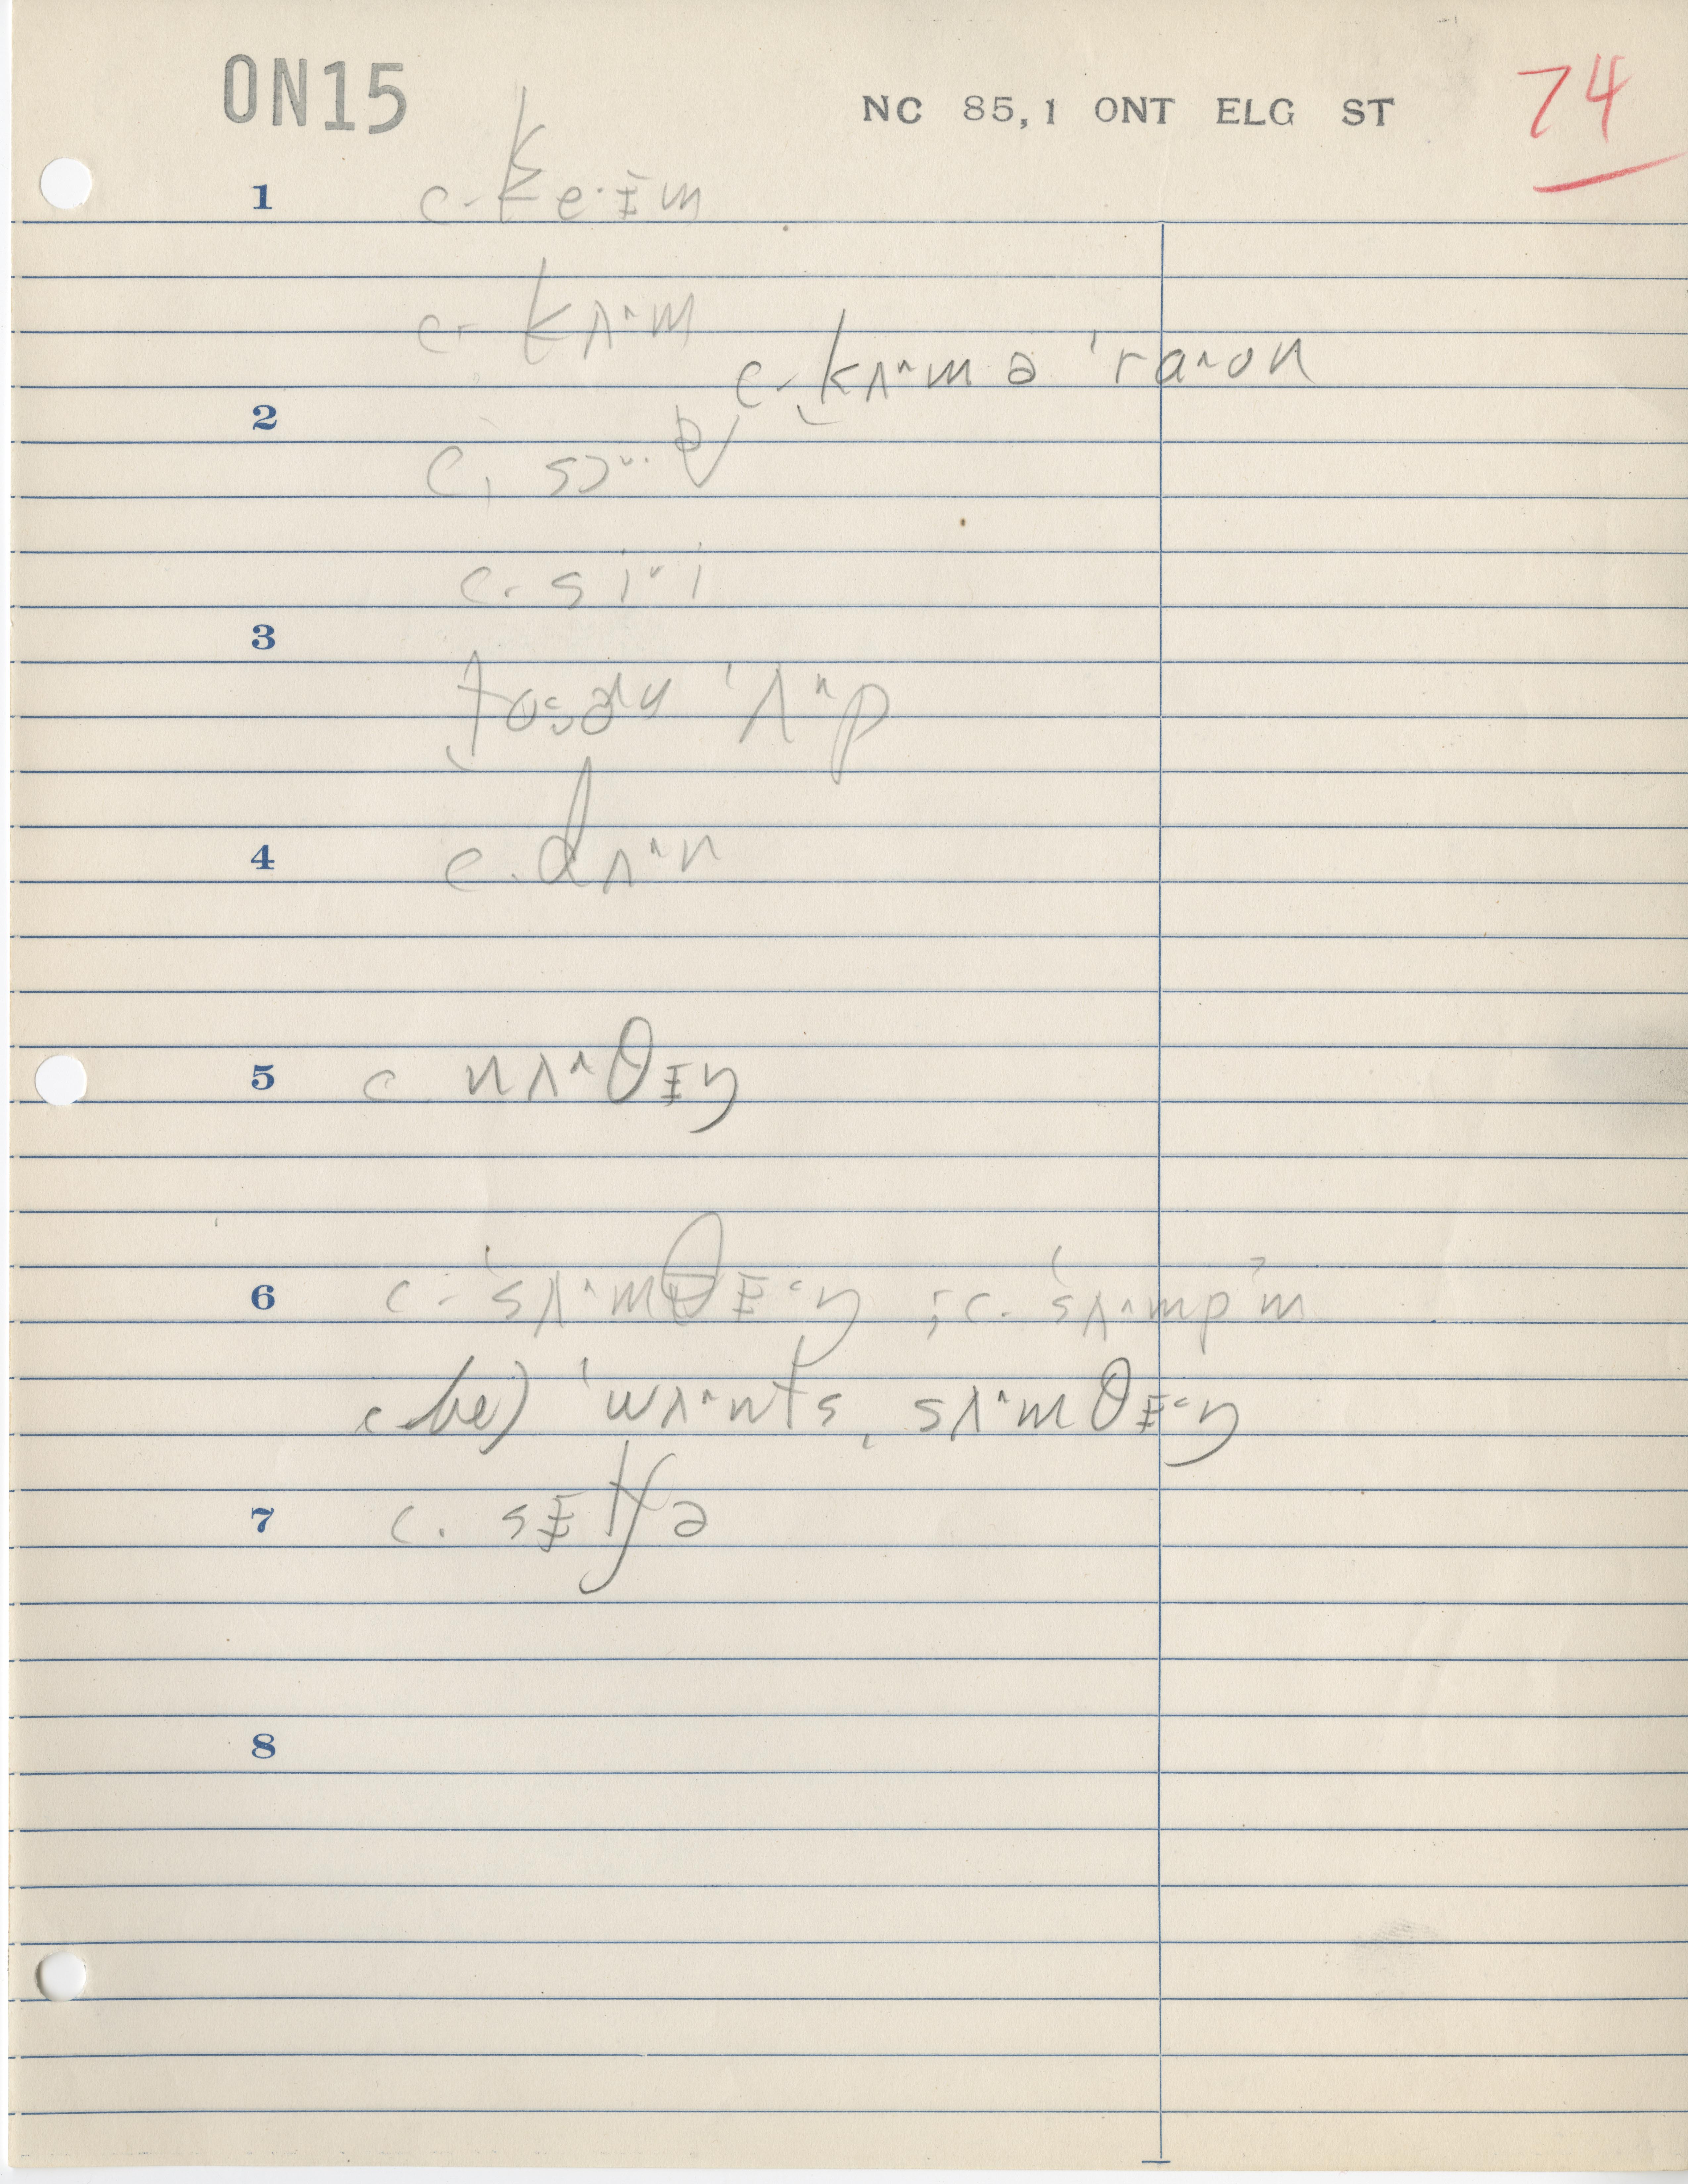 ON15
NC 85,1 ONT ELG ST
74
1 c- k̬e·ɪm
c- k̬ʌ^m
c- kʌ^m ə 'ra^ʊn
2
c. si˅i
3
'ʌ^p
4 c. dʌ^n
5 c. nʌ^θɪŋ
6 c- 'sʌ^mθɪ˂ŋ ; c. 'sʌ^mpʔm
c. he) 'wʌ^nts ˌsʌ^mθɪ˂ŋ
7 c. sɪtʃə
8